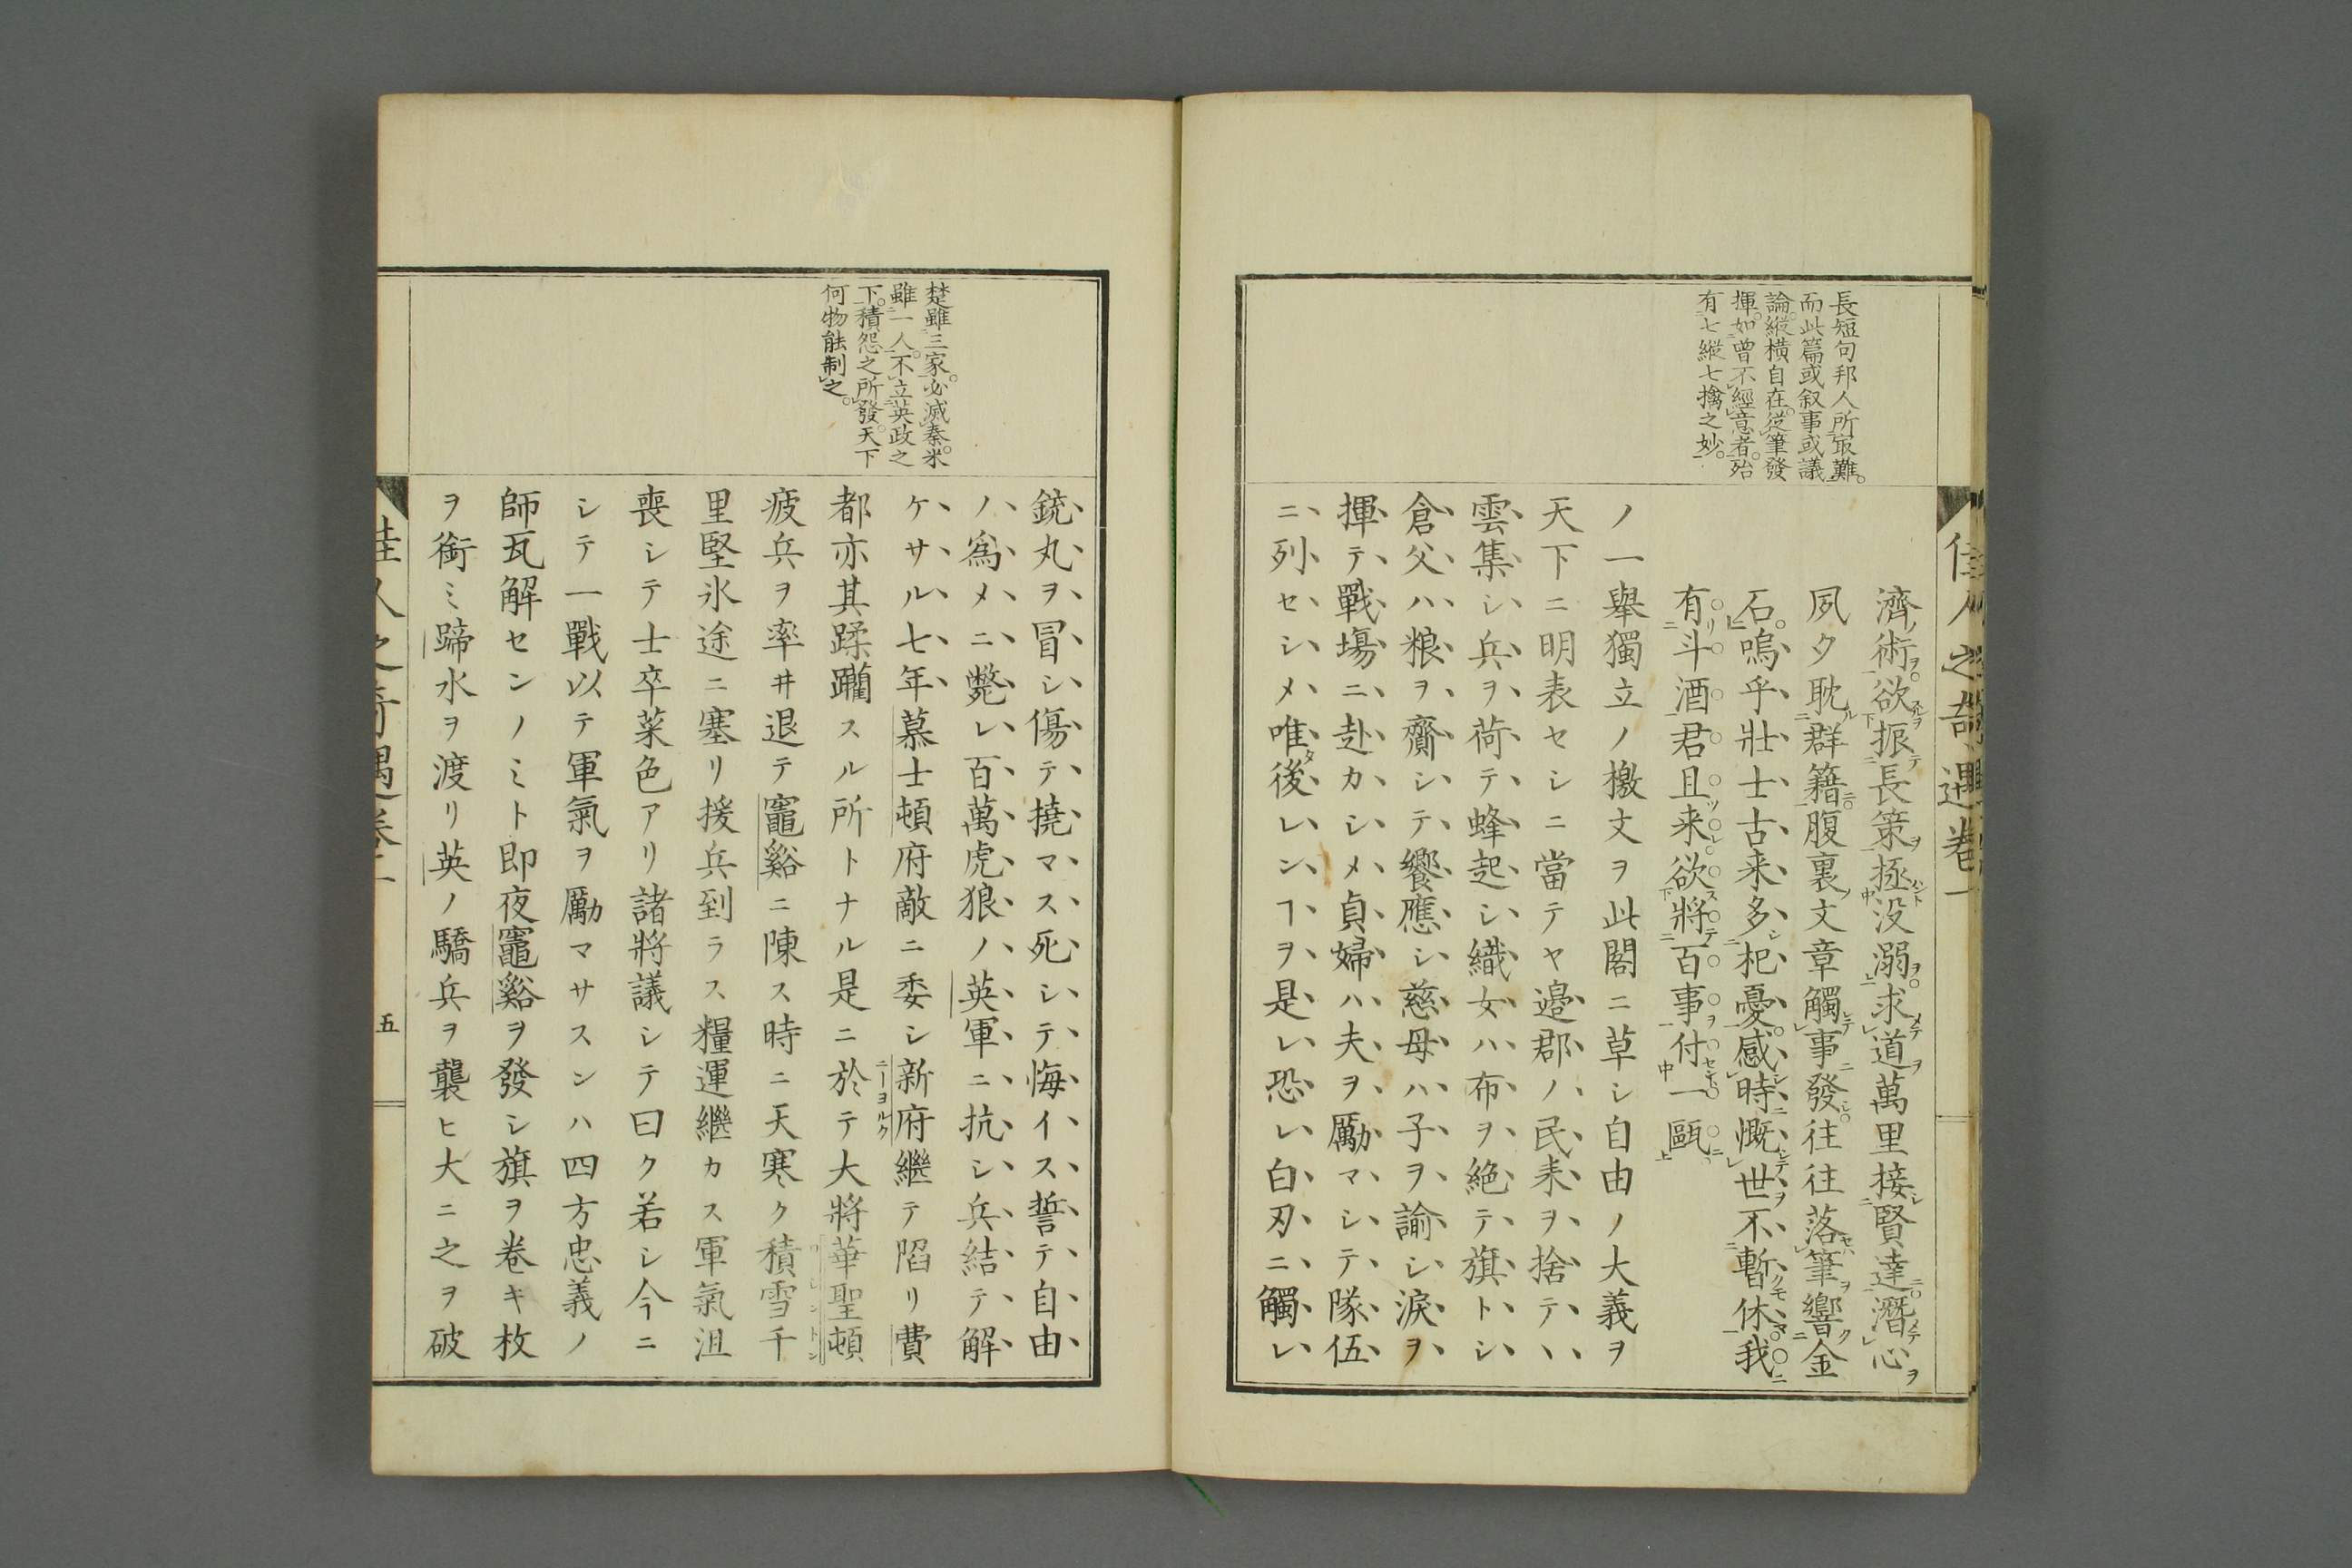 佳人之奇遇卷一
長短句邦人所最難
而此篇或叙事或議
論縱橫自在從筆發
揮如曾不經意者殆
有七縱七擒之妙
濟術欲振長策拯没溺求道萬里接賢達潛心
夙タ耽群籍腹裏文章觸事發往往落筆響金
石嗚乎壯士古来多杞憂感時慨世不暫休我
有斗酒君且来欲將百事付一甌
ノ一擧獨立ノ檄文ヲ此閣ニ草シ自由ノ大義ヲ
天下ニ明表セシニ當テヤ邉郡ノ民耒ヲ捨テヽ
雲集シ兵ヲ荷テ蜂起シ織女ハ布ヲ絶テ旗トシ
倉父ハ粮ヲ齎シテ饗應シ慈母ハ子ヲ諭シ淚ヲ
揮テ戰塲ニ赴カシメ貞婦ハ夫ヲ勵マシテ隊伍
ニ列セシメ唯後レンヿヲ是レ恐レ白刃ニ觸レ
楚雖三家必滅秦米
雖一人不立英政之
下積怨之所發天下
何物能制之
銃丸ヲ冒シ傷テ撓マス死シテ悔イス誓テ自由
ノ爲メニ斃レ百萬虎狼ノ英軍ニ抗シ兵結テ解
ケサル七年慕士頓府敵ニ委シ新府継テ陷リ費
ニーヨルク
都亦其蹂躙スル所トナル是ニ於テ大將華聖頓
ワシントン
疲兵ヲ率井退テ竈谿ニ陳ス時ニ天寒ク積雪千
里堅氷途ニ塞リ援兵到ラス糧運繼カス軍氣沮
喪シテ士卒菜色アリ諸將議シテ曰ク若シ今ニ
シテ一戰以テ軍氣ヲ勵マサスンハ四方忠義ノ
師瓦解センノミト即夜竈谿ヲ發シ旗ヲ卷キ枚
ヲ銜ミ蹄水ヲ渡リ英ノ驕兵ヲ襲ヒ大ニ之ヲ破
佳人之奇遇卷一
五